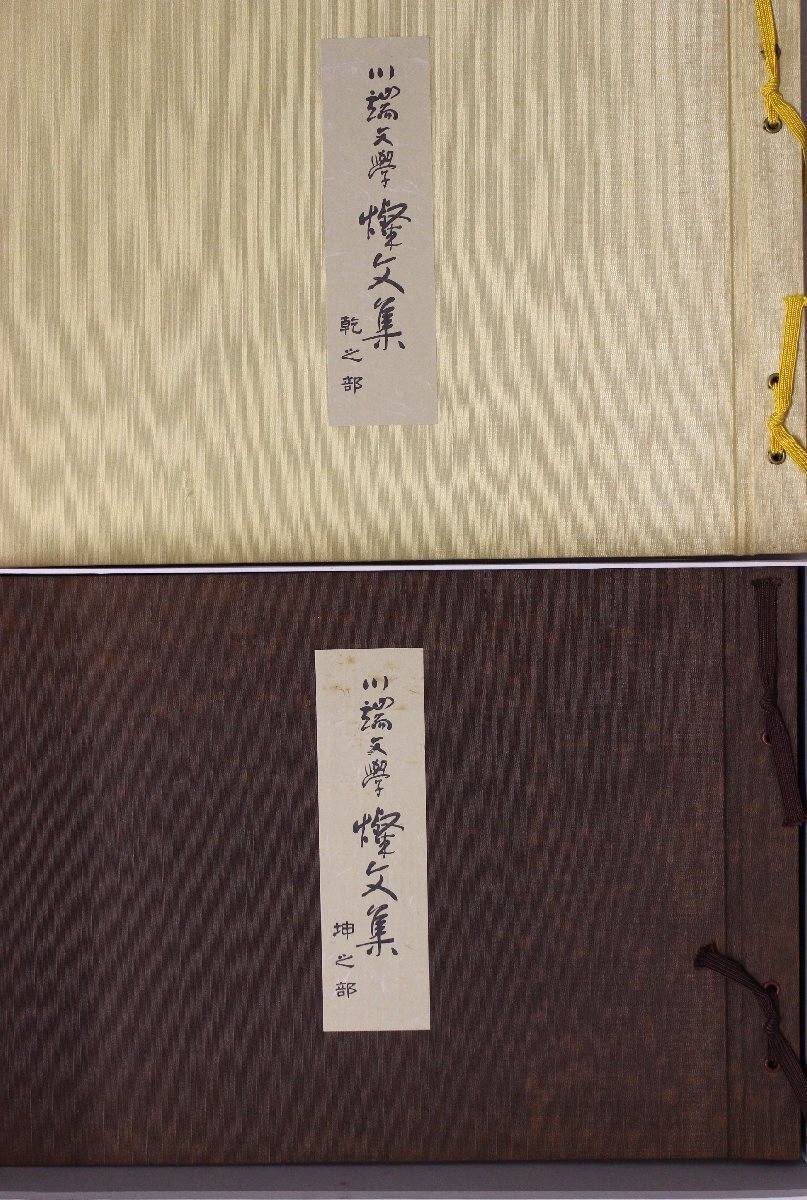 川端文學燦文集
乾之部
川端文學燦文集
坤之部